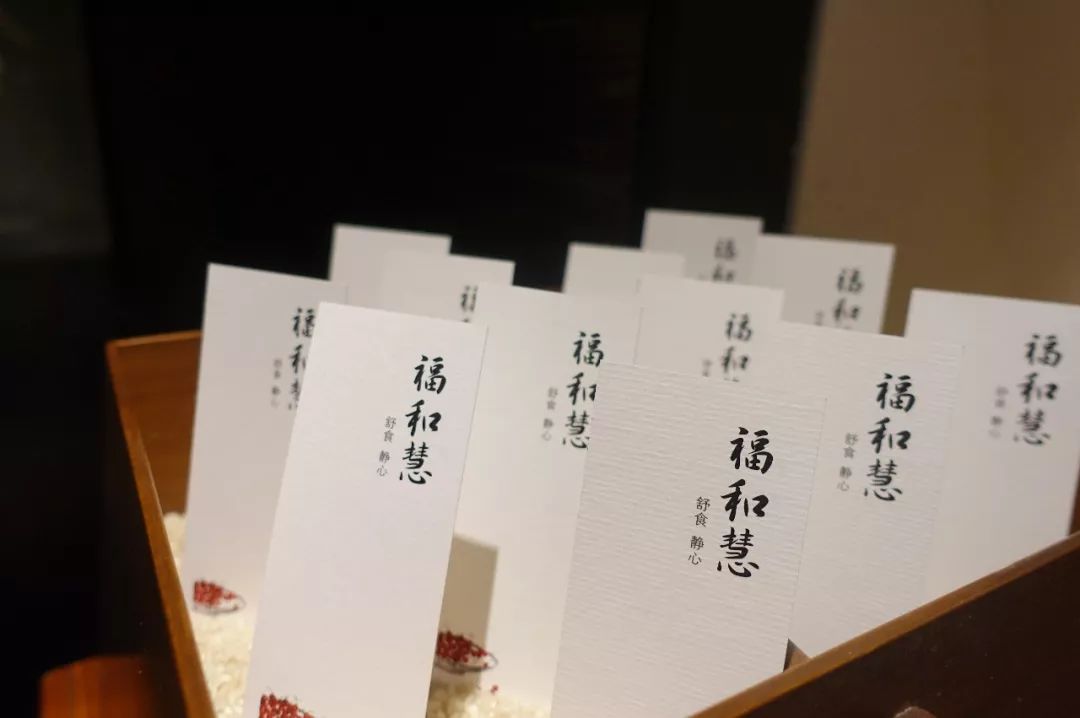 福和
福和
福和
福和慧
舒食 静心
福和
舒食 静心
福和慧
舒食 静心
福和慧
舒食 静心
福和慧
舒食 静心
福和慧
舒食 静心